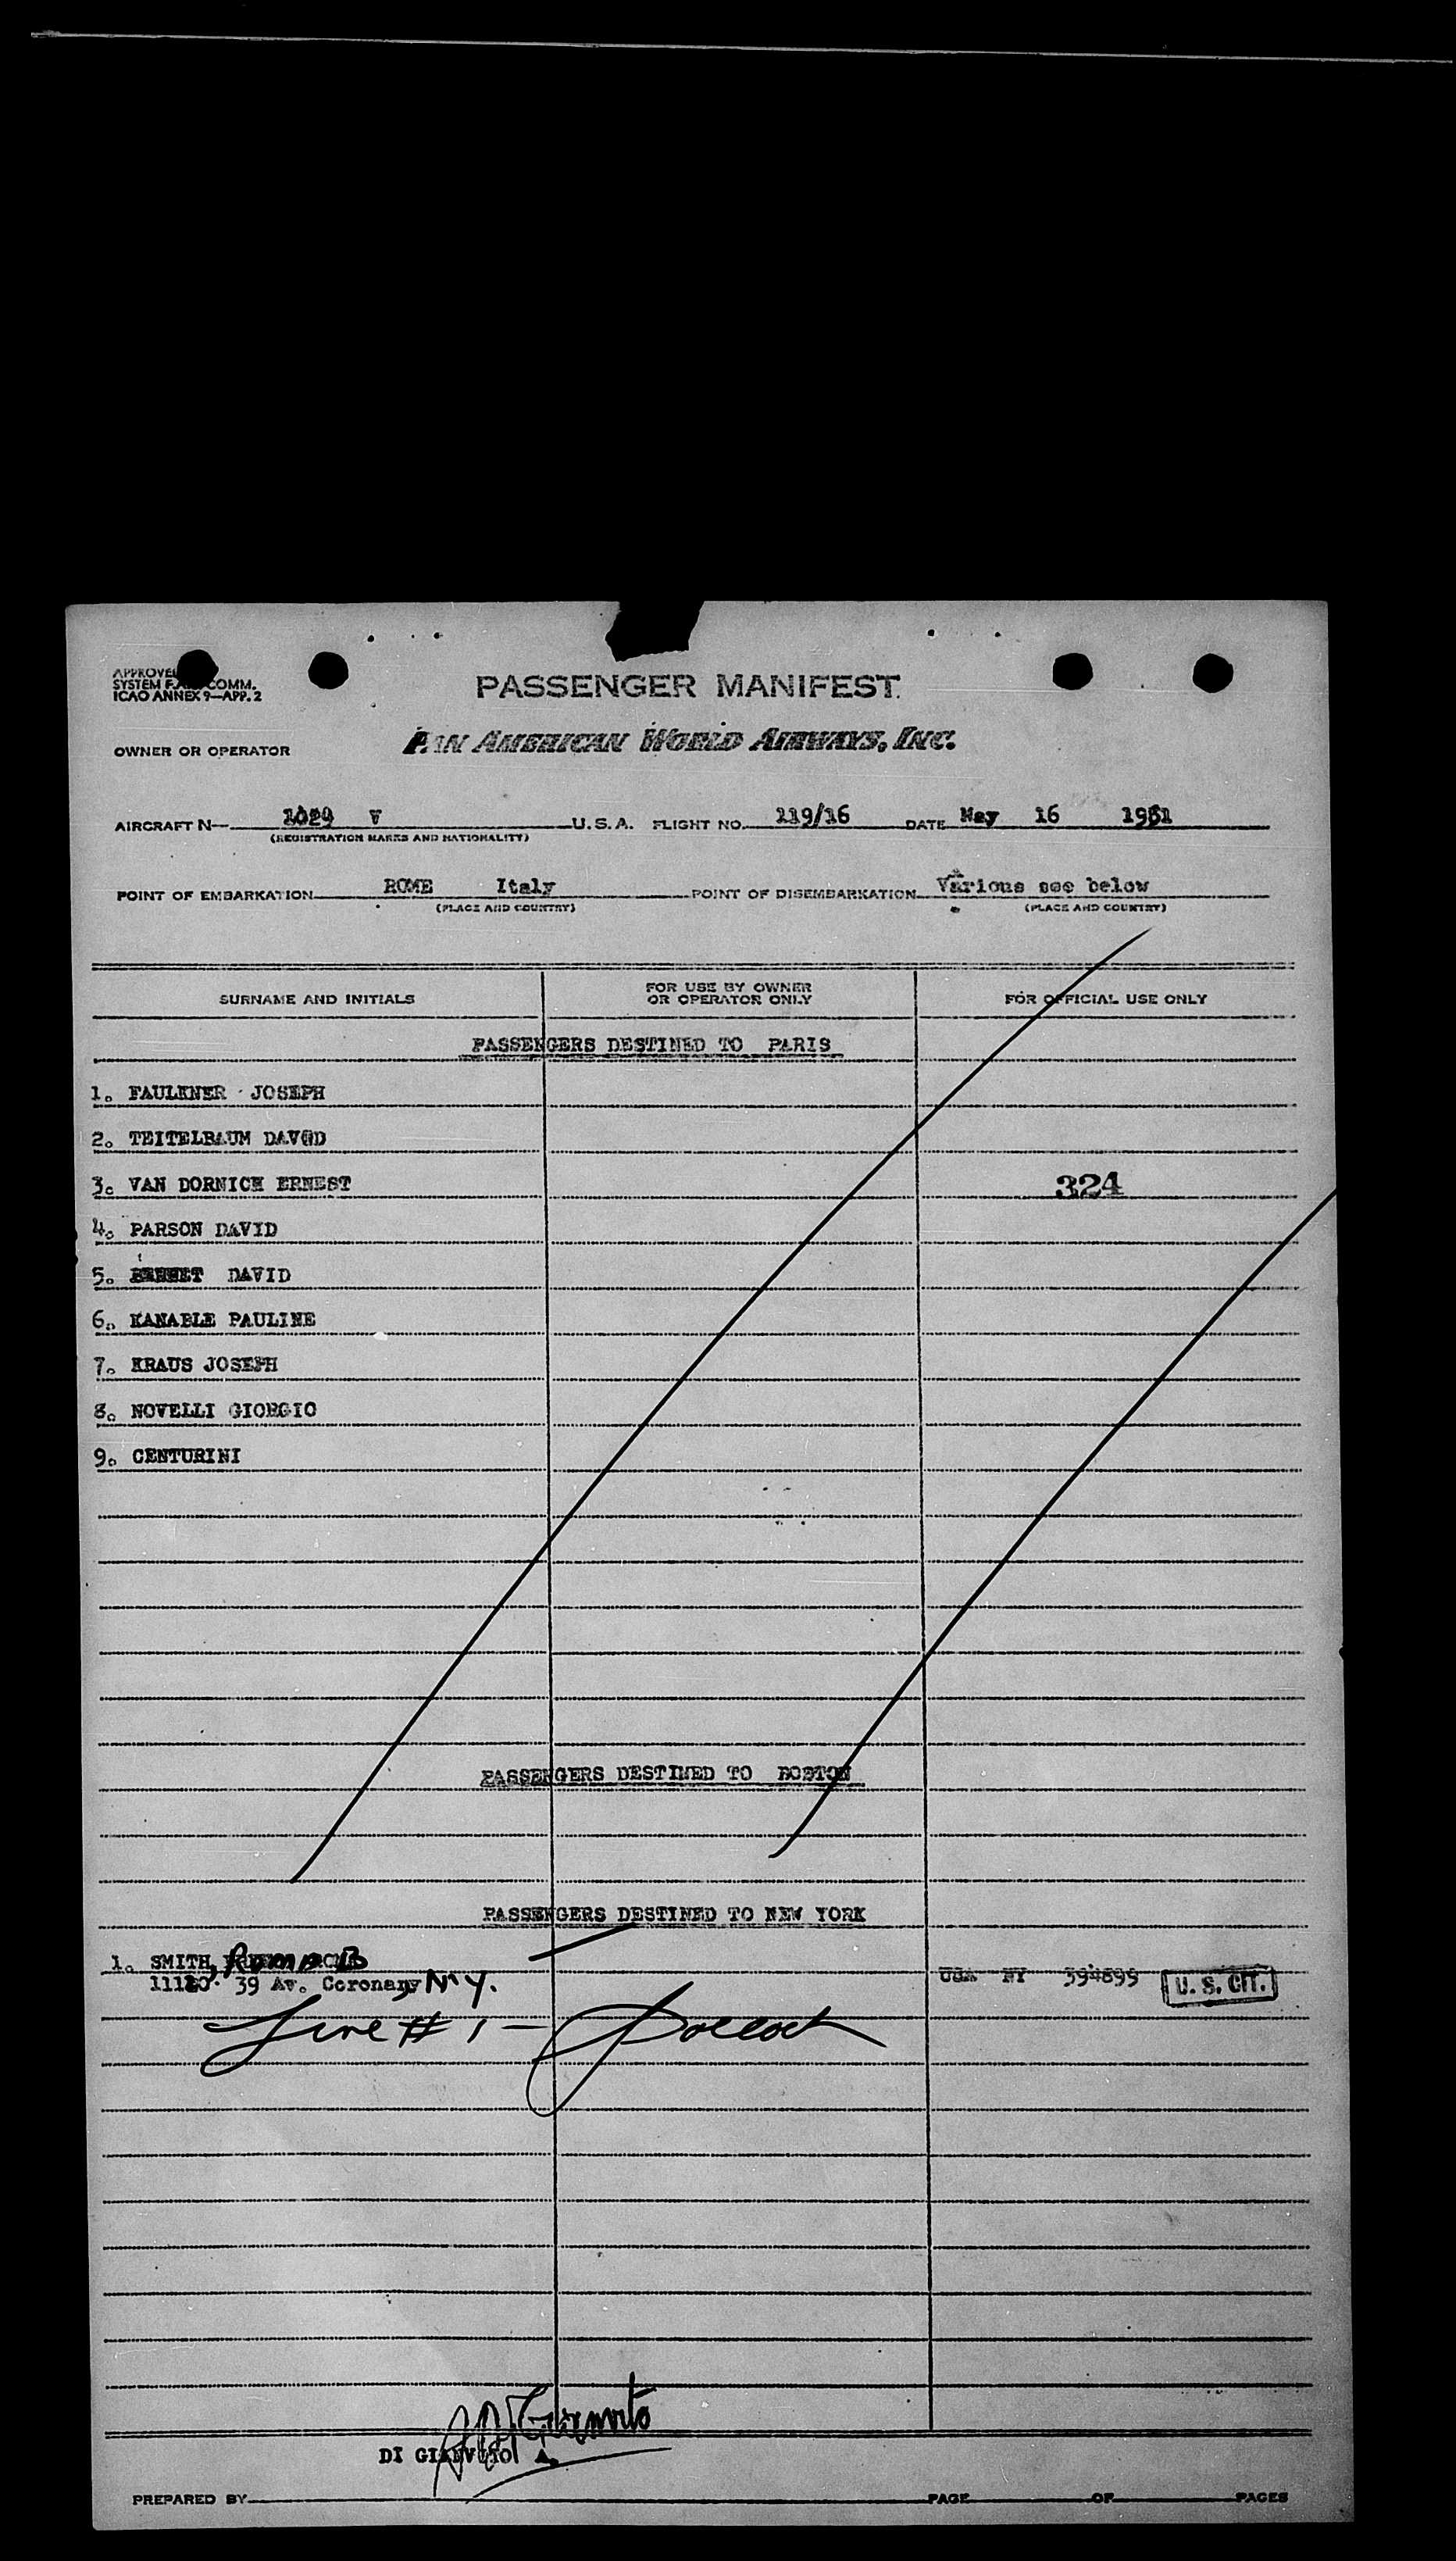 APPROVED
SYSTEM COMM.
ICAO ANNEX 9—APP. 2
PASSENGER MANIFEST
OWNER OR OPERATOR
PAN AMERICAN WORLD AIRWAYS, INC.
AIRCRAFT N— 1029 V U.S.A. FLIGHT NO. 119/16 DATE May 16 1951
(REGISTRATION MARKS AND NATIONALITY)
POINT OF EMBARKATION ROME Italy POINT OF DISEMBARKATION Various see below
(PLACE AND COUNTRY) (PLACE AND COUNTRY)
SURNAME AND INITIALS FOR USE BY OWNER OR OPERATOR ONLY FOR OFFICIAL USE ONLY
PASSENGERS DESTINED TO PARIS
1. FAULKNER JOSEPH
2. TEITELBAUM DAVID
3. VAN DORNICK ERNEST 324
4. PARSON DAVID
5. DAVID
6. KANABLE PAULINE
7. KRAUS JOSEPH
8. NOVELLI GIORGIO
9. CENTURINI
PASSENGERS DESTINED TO BOSTON
PASSENGERS DESTINED TO NEW YORK
1. SMITH,
39 Av. N.Y. USA NY 594899 U. S. CIT.
Line # 1 —
DI A.
PREPARED BY PAGE OF PAGES